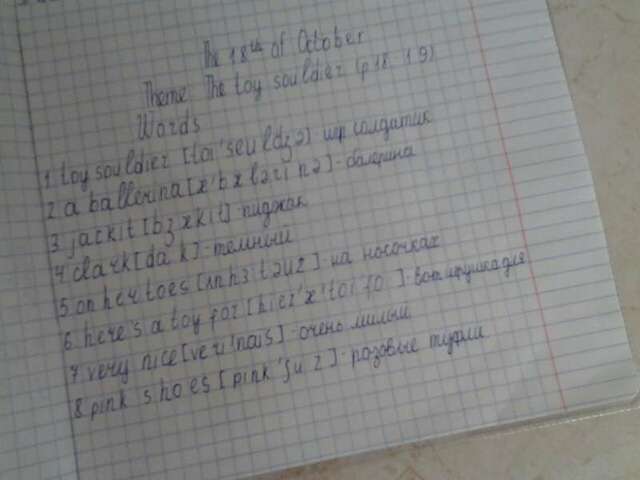 The 18th of October
Theme: The toy souldier (p 18 19)
Words
1. toy souldier [toi'seuldzə] - игр солдатик
2. a ballerina [x'bxləri nə] - балерина
3. jackit [bzxkit] - пиджак
4. clark [da k] - темный
5. on her toes [ɪnhɜ təuz] - на носочках
6. here's a toy for [hiez'x'toi fo] - вот игрушка для
7. very nice [veri'nais] - очень милый
8. pink shoes [pink 'ʃu z] - розовые туфли